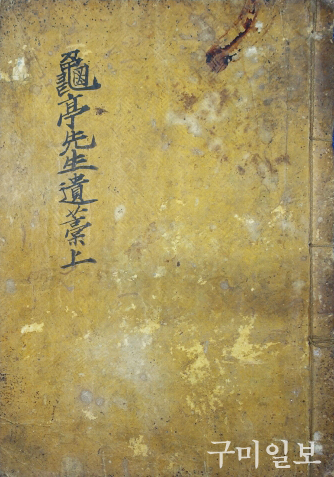 龜亭先生遺藁上
구미일보